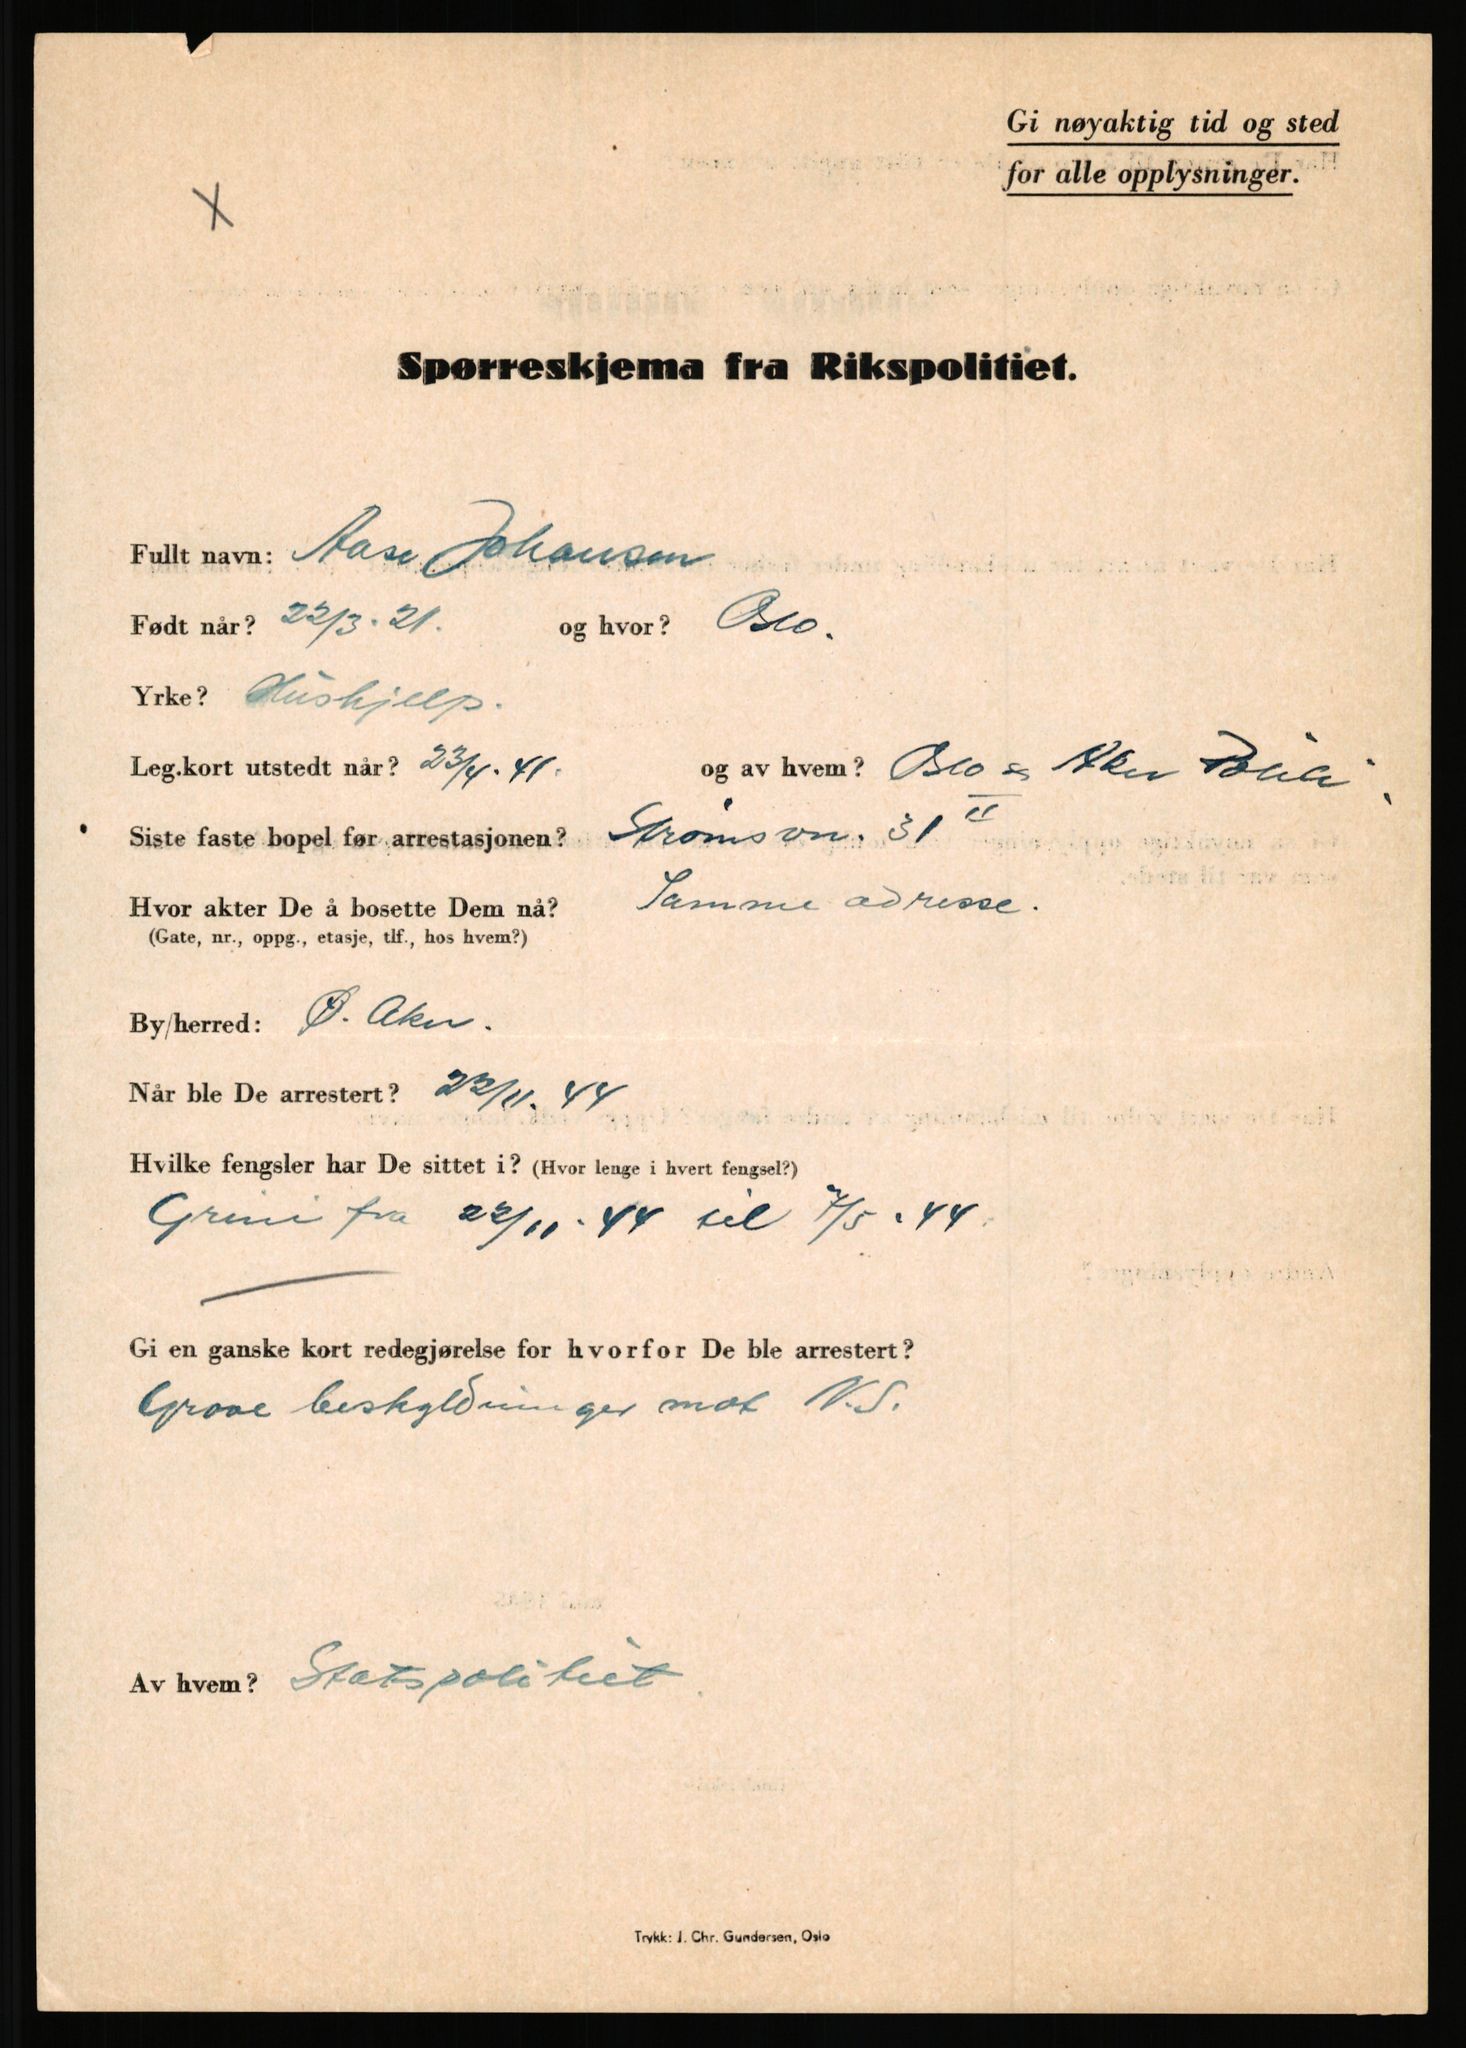 Gi nøyaktig tid og sted
for alle opplysninger.
X
Spørreskjema fra Rikspolitiet.
Fullt navn: Aase Johansen
Født når? 22/3-21. og hvor? Oslo.
Yrke? Hushjelp.
Leg.kort utstedt når? 23/4-41. og av hvem? Oslo og Aker Politi
Siste faste bopel før arrestasjonen? Strømsvn. 31 II
Hvor akter De å bosette Dem nå? Samme adresse.
(Gate, nr., oppg., etasje, tlf., hos hvem?)
By/herred: Ø. Aker.
Når ble De arrestert? 22/11-44
Hvilke fengsler har De sittet i? (Hvor lenge i hvert fengsel?)
Grini fra 22/11-44 til 7/5-44
Gi en ganske kort redegjørelse for hvorfor De ble arrestert?
Grove beskyldninger mot N.S.
Av hvem? Statspolitiet.
Trykk: J. Chr. Gundersen, Oslo